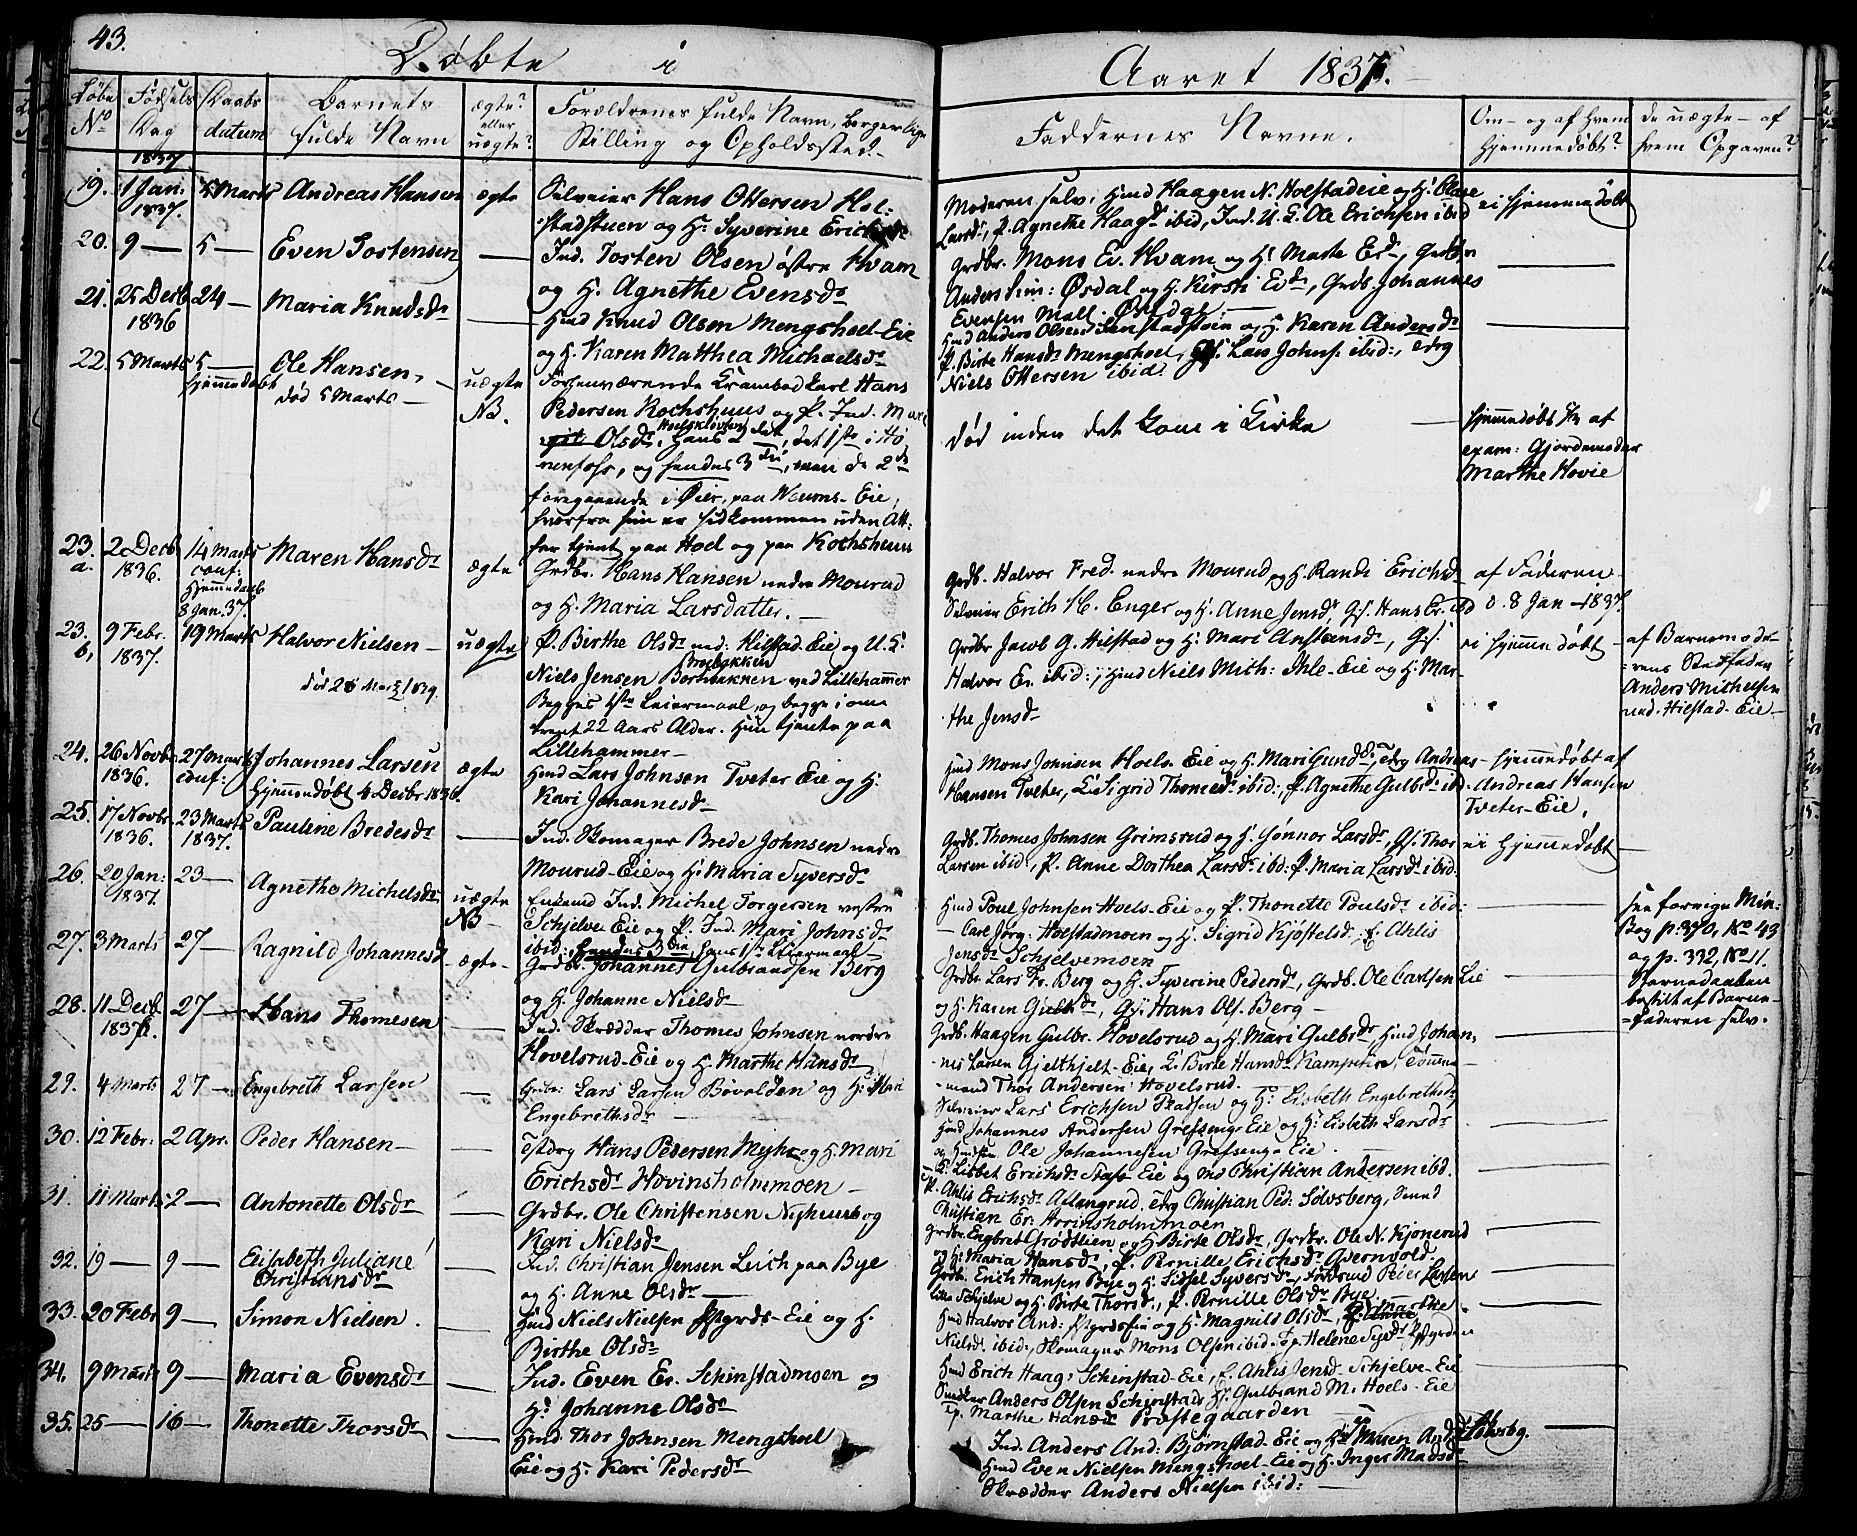 43.
Døbte i Aaret 1837.
Løbe No
Fødsels Dag
Daabs datum
Barnets fulde Navn
ægte? eller uægte?
Forældrenes fulde Navn, borgerlige Stilling og Opholdssted.
Faddernes Navne.
Om - og af Hvem Hjemmedøbt?
de uægte - af hvem Opgaven?
1837
19. 1 Jan. 1837. 5 Marts Andreas Hansen ægte
Selveier Hans Ottersen Hol-
stadstuen og H. Syverine Erichsdr
Moderen selv, Huusmd Haagen N. Holstadeie og H.
Larsdr, P. Agnethe Haagdr ibid, Ind. U. G. Ole Erichsen ibid
ei hjemmedøbt
20. 9 — 5 — Even Tostensen —
Ind. Tosten Olsen østre Kvam
og H. Agnethe Evensdr
Grdbr. Mons Ev. Kvam og H. Marte Ed,
Anders Sim: Øsdal og H. Kirsti Edr, Grdb. Johannes
Evensen
21. 25 Decb 1836 24 — Maria Knudsdr —
Hmd Knud Olsen Mengshoel-Eie
og H. Karen Matthea Michaelsdr
Hmd Anders Olsen og H. Karen Andersdr
P. Birte Hansdr Mengshoel, Lars Johns. ibid:,
Niels Ottersen ibid.
22. 5 Marts 5 — hjemmedøbt Ole Hansen, død 5 Marts — uægte NB.
Forhenværende Krambod karl Hans
Pedersen Kochshuus og P. Ind.
Olsdr, Hans det 1ste i Hø-
nenfoss, og hendes 3die, men de 2de
foregaaende i Øier, paa Weums-Eie,
hvorfra hun er hidkommen uden Att:
har tjent paa Hoel og paa Kochshuus
død inden det kom i Kirke
hjemmedøbt 5/3 af
exam: Gjordemoder
Marthe Hovie
23. a. 2 Decb. 1836. 14 Marts conf: hjemmedaab 8 Jan. 37. Maren Hansdr ægte
Grdbr. Hans Hansen nedre Mourud
og H. Maria Larsdatter. —
Grdb. Halvor Fred. nedre Mourud og H. Randi Erichsd
Selveier Erich H. Enger og H. Anne Jensdr, G/. Hans Er. ibd
af Faderen
d. 8 Jan — 1837.
23. b, 9 Febr. 1837. 19 Marts Halvor Nielsen — uægte
død 28 Marts 1839.
P. Birthe Olsdr ned: Hilstad-Eie og U. K.
Niels Jensen ved Lillehammer
Begges 1ste Leiermaal, og begge i om-
trent 22 Aars Alder. Hun tjente paa
Lillehammer —
Grdbr Jacob G. Hilstad og H. Mari Anstensdr, G/.
Halvor Er. ibid:, Hmd Niels Mich: Ihle-Eie og H. Mar-
the Jensdr
ei hjemmedøbt
af Barnemode-
rens Stedfader
Anders Michelsen
ned. Hilstad-Eie —
24. 26 Novbr 1836. 27 Marts conf: Johannes Larsen ægte
Hjemmedøbt 4 Decbr 1836.
Hmd Lars Johnsen Tveter Eie og H.
Kari Johannesdr
Hmd Mons Johnsen Hoels-Eie og H. Mari Gundr, Andreas
Hansen Tveter, Sigrid Thomesdr ibid:, P. Agnethe Gulbrdr ibd.
hjemmedøbt af
Andreas Hansen
Tveter-Eie,
25. 17 Novbr. 1836. 23 Marts 1837. Pauline Bredesdr —
Ind. Skomager Brede Johnsen nedre
Mourud-Eie og H. Maria Syversdr
Grdb. Thomes Johnsen Grimsrud og H. Gønnor Larsdr, G/. Thor
Larsen ibid:, P. Anne Dorthea Larsdr ibd: P. Maria Larsdr ibid.
ei hjemmedøbt —
26. 20 Jan: 1837. 23 — Agnethe Michelsdr uægte NB
Enkemd Ind. Michel Torgersen vestre
Schjelve Eie og P. Ind. Mari Johnsdr
ibid: hendes 3die, hans 1ste Leiermaal —
Hmd Poul Johnsen Hoels-Eie og P. Thonette Poulsdr ibid:
Carl Jørg: Holstadmoen og H. Sigrid Kjøstelsd, E. Ahlis
Jensdr Schjelvemoen
see forrige Min:
Bog p. 390, No 43
og p. 332, No 11.
Barnedaaben
bestilt af Barne-
faderen selv.
27. 3 Marts 27 — Ragnild Johannesd ægte —
Grdbr. Johannes Gulbrandsen Berg
og H. Johanne Nielsdr
Grdbr. Lars Fr. Berg og H. Syverine Pedersdr, Grdb. Ole Carlsen Lie
og H. Karen Gulbrdr, G/. Hans Ols. Berg —
28. 11 Decb. 1836. 27 — Hans Thomesen —
Ind. Skrædder Thomes Johnsen nordre
Hovelsrud-Eie og H. Marthe Hansdr
Grdb. Haagen Gulbr. Hovelsrud og H. Mari Gulbrdr, Hmd Johan-
nes Larsen Gjelthjelt-Eie, E. Birte Hansdr Tømme-
mand Thor Andersen Hovelsrud.
29. 4 Marts 27 — Engebreth Larsen —
Grdbr: Lars Larsen Bøvolden og H: Mari
Engebrethsdr —
Selveier Lars Erichsen og H: Lisbeth Engebrethsdr
Hmd Johannes Andersen Grefsengs-Eie og H: Lisbeth Larsdr
og Ole Johannesen Grefseng-Eie
30. 12 Febr: 2 Apr. Peder Hansen —
Hans Pedersen Myhre og H. Mari
Erichsdr Hovinsholmmoen —
E. Lisbet Erichsdr Eie og Md Christian Andersen ibd.
P. Ahlis Erichsdr Atlangrud, Christian Ped: Solvsberg, Smed
Christian Er: Hovinsholmmoen
31. 11 Marts 2 — Antonette Olsdr —
Grdbr. Ole Christensen Nyhuus og
Kari Nielsdr
Grdbr. Engbret Grødtlien og H. Birte Olsdr, Grdbr. Ole N. Kjonerud
og H. Maria Hansdr, P. Pernille Erichsdr Qvernvold
32. 19 — 9 — Elisabeth Juliane Christiansdr —
Ind. Christian Jensen Leich paa Bye
og H. Anne Olsdr —
Grdbr. Erich Hansen Bye og H. Sidsel Syversdr, Peder Larsen
lille Schjelve og H. Birte Thorsdr, P. Pernille Olsdr Bye.
33. 20 Febr 9 — Simon Nielsen. —
Hmd Niels Nielsen og H.
Birthe Olsdr
Hmd Halvor And: og H. Magnils Olsdr, Marthe
Nielsdr ibid: Skomager Mons Olsen ibid: P. Helene
34. 9 Marts 9 — Maria Evensdr —
Ind. Even Er. Schinstadmoen og
H. Johanne Olsdr
Hmd Erich Haag: Schinstad-Eie, E. Ahlis Jensdr Schjelve-Eie
Snedker Anders Olsen Schinstad, G/. Gulbrand M. Hoels-Eie
P. Marthe Hansdr Præstegaarden —
35. 25 — 16 — Thonette Thorsdr —
Hmd. Thor Johnsen Mengshoel
Eie og H. Kari Pedersdr
Ind. Anders And: Bjørnstad-Eie og H.
Hmd Even Nielsen Mengshoel-Eie og H. Inger Madsdr
Skrædder Anders Nielsen ibid: —